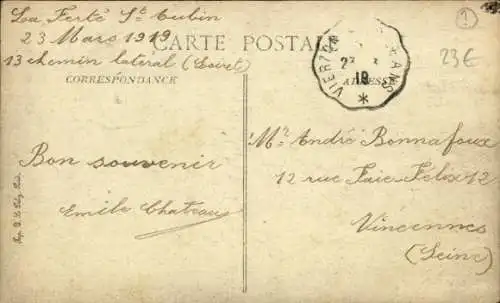 La Ferté St Aubin
23 Mars 1919
13 chemin latéral (Loiret)
CARTE POSTALE
CORRESPONDANCE
ADRESSE
VIERZON
ANS
19
*
1
23€
Bon souvenir
Emile Chateau
Mr. André Bonnafoux
12 rue Faie Felix 12
Vincennes
(Seine)